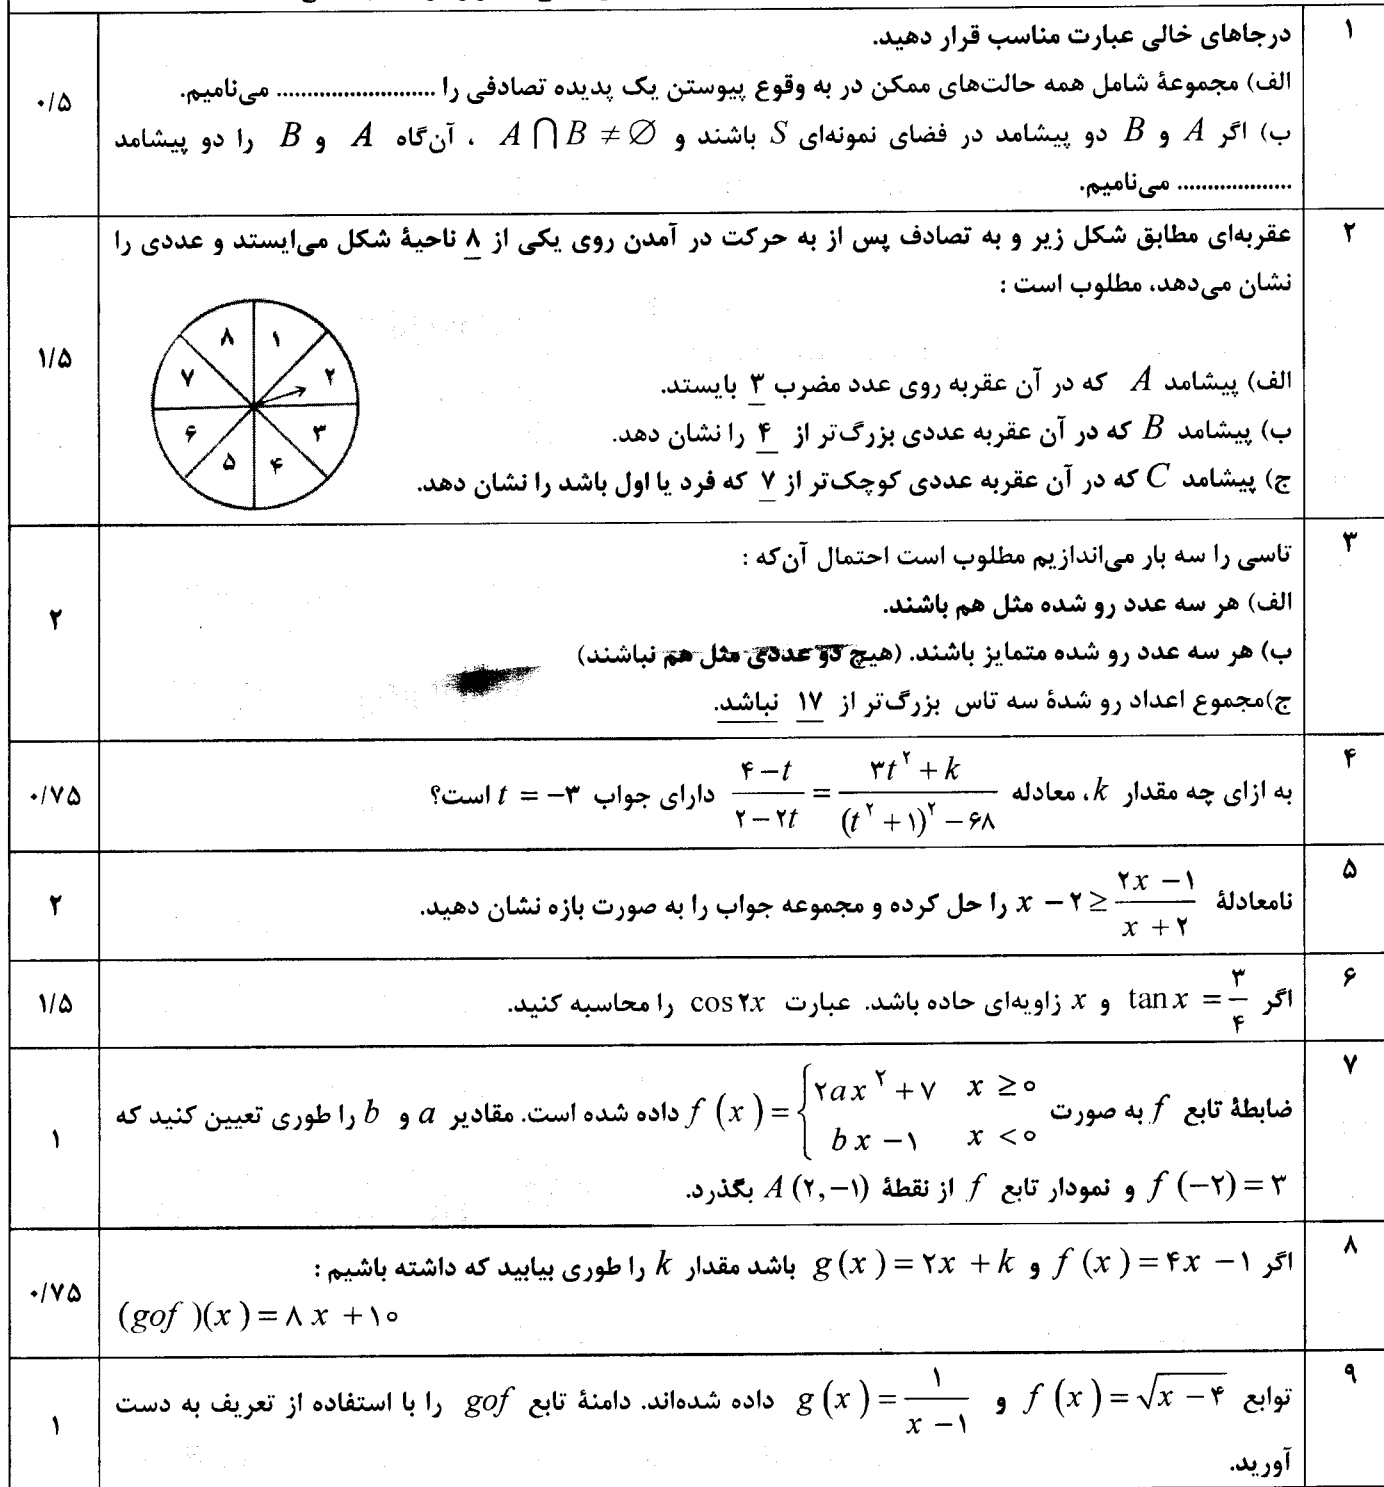 ۱
درجاهای خالی عبارت مناسب قرار دهید.
الف) مجموعهٔ شامل همه حالت‌های ممکن در به وقوع پیوستن یک پدیده تصادفی را .......................... می‌نامیم.
ب) اگر A و B دو پیشامد در فضای نمونه‌ای S باشند و A ⋂ B ≠ ∅ ، آن‌گاه A و B را دو پیشامد
................... می‌نامیم.
۰/۵
۲
عقربه‌ای مطابق شکل زیر و به تصادف پس از به حرکت در آمدن روی یکی از ۸ ناحیهٔ شکل می‌ایستد و عددی را
نشان می‌دهد، مطلوب است :
الف) پیشامد A که در آن عقربه روی عدد مضرب ۳ بایستد.
ب) پیشامد B که در آن عقربه عددی بزرگ‌تر از ۴ را نشان دهد.
ج) پیشامد C که در آن عقربه عددی کوچک‌تر از ۷ که فرد یا اول باشد را نشان دهد.
۸ ۱
۷ ۲
۶ ۳
۵ ۴
۱/۵
۳
تاسی را سه بار می‌اندازیم مطلوب است احتمال آن‌که :
الف) هر سه عدد رو شده مثل هم باشند.
ب) هر سه عدد رو شده متمایز باشند. (هیچ دو عددی مثل هم نباشند)
ج)مجموع اعداد رو شدهٔ سه تاس بزرگ‌تر از ۱۷ نباشد.
۲
۴
به ازای چه مقدار k، معادله (۴−t)/(۲−۲t) = (۳t^۲+k)/((t^۲+۱)^۲−۶۸) دارای جواب t = −۳ است؟
۰/۷۵
۵
نامعادلهٔ x − ۲ ≤ (۲x −۱)/(x +۲) را حل کرده و مجموعه جواب را به صورت بازه نشان دهید.
۲
۶
اگر tan x = ۳/۴ و x زاویه‌ای حاده باشد. عبارت cos۲x را محاسبه کنید.
۱/۵
۷
ضابطهٔ تابع f به صورت f (x) = { ۲ax^۲ +۷ x ≥ ۰ ; bx −۱ x < ۰ داده شده است. مقادیر a و b را طوری تعیین کنید که
f (−۲) = ۳ و نمودار تابع f از نقطهٔ A (۲,−۱) بگذرد.
۱
۸
اگر f (x) = ۴x −۱ و g(x) = ۲x +k باشد مقدار k را طوری بیابید که داشته باشیم :
(gof)(x) = ۸x +۱۰
۰/۷۵
۹
توابع f (x) = √(x −۴) و g(x) = ۱/(x −۱) داده شده‌اند. دامنهٔ تابع gof را با استفاده از تعریف به دست
آورید.
۱